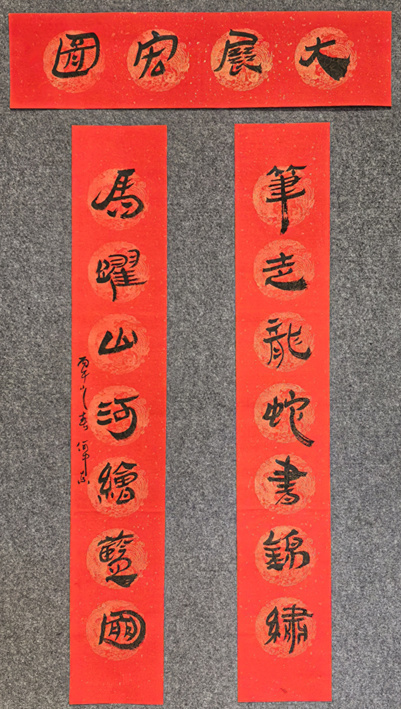 大展宏圖
筆走龍蛇書錦繡
馬躍山河繪藍圖
丙午之春